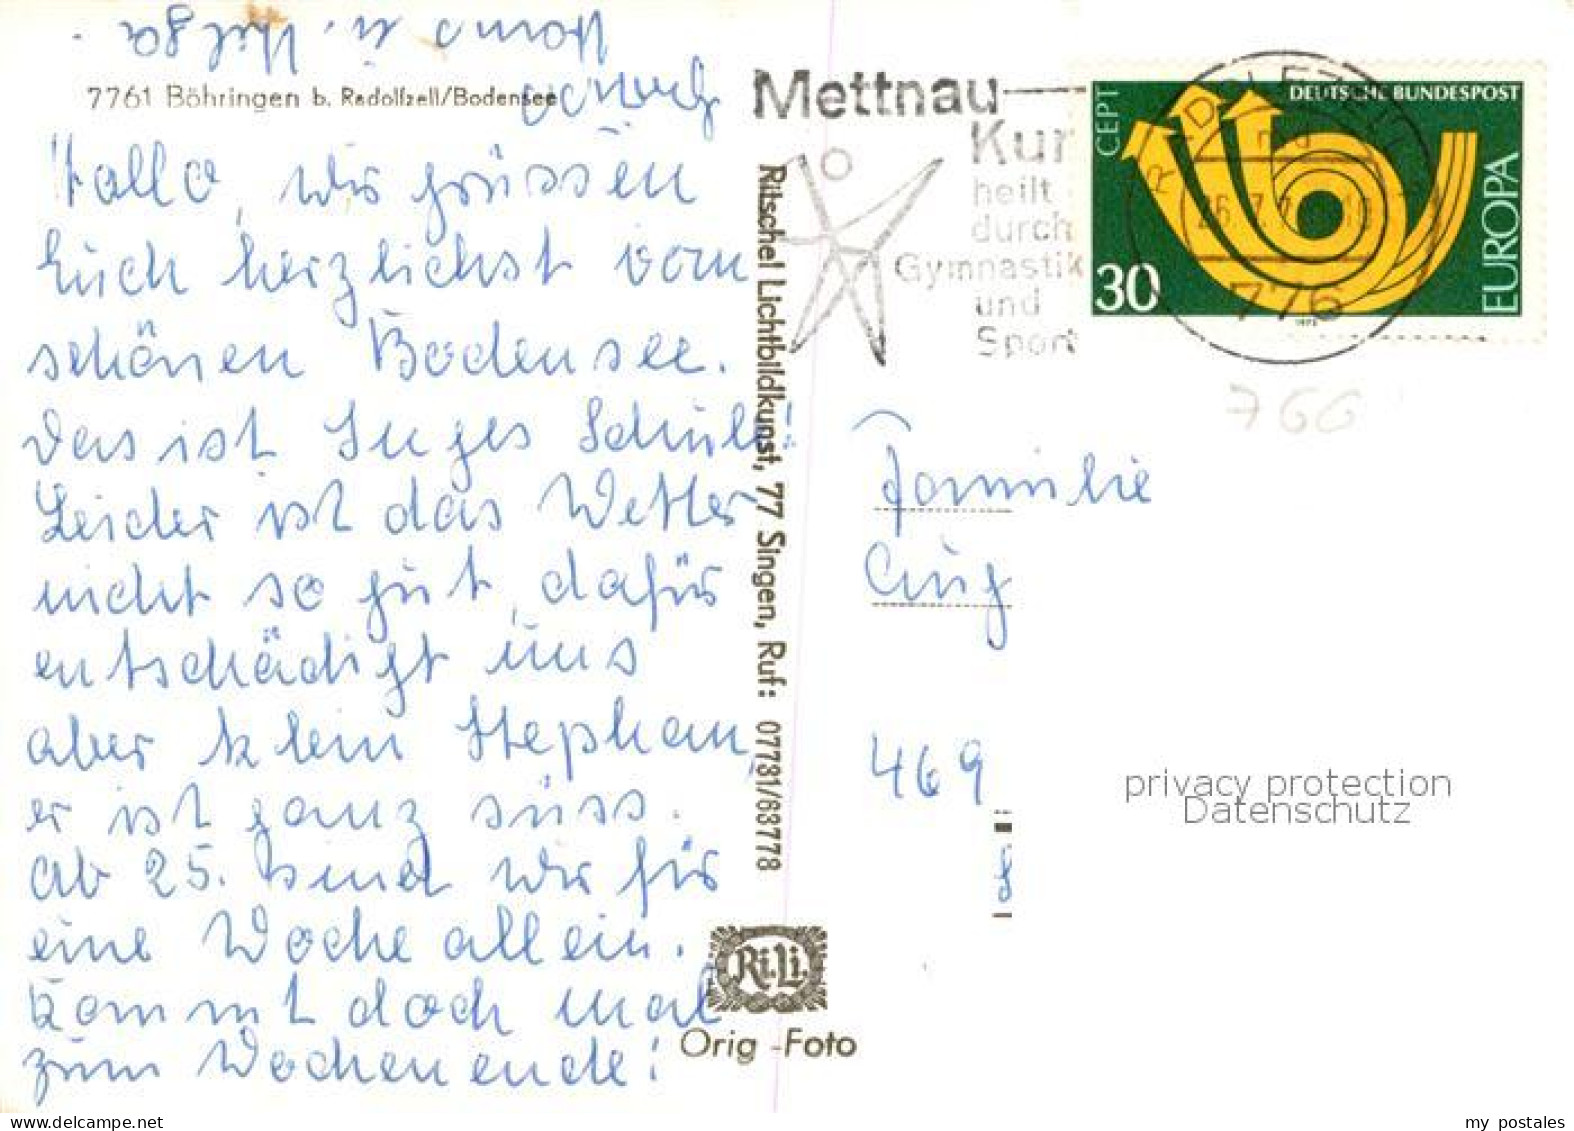 7761 Böhringen b. Radolfzell/Bodensee
Hallo, wir grüssen
Euch herzlichst vom
schönen Bodensee.
Das ist Inges Schule!
Leider ist das Wetter
nicht so gut, dafür
entschädigt uns
aber klein Stephan,
er ist ganz süss.
Ab 25. sind wir für
eine Woche allein.
Kommt doch mal
zum Wochenende!
Hans u. Helga.
Ritschel Lichtbildkunst, 77 Singen, Ruf: 07731/63778
Ri.Li.
Orig-Foto
Mettnau
Kur
heilt
durch
Gymnastik
und
Sport
776
CEPT
DEUTSCHE BUNDESPOST
EUROPA
30
1973
766
Familie
469
privacy protection
Datenschutz
www.delcampe.net
my postales